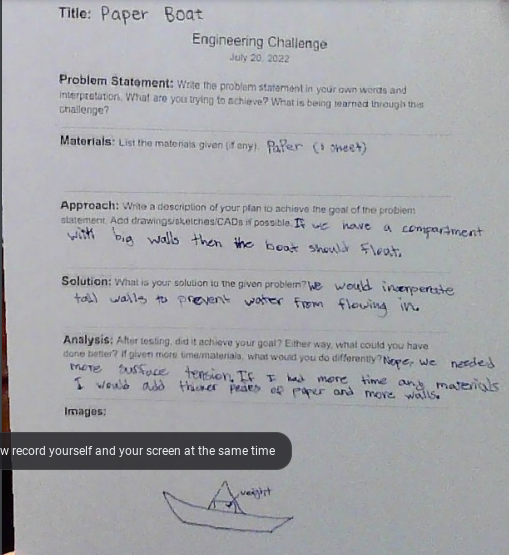 Title: Paper Boat
Engineering Challenge
July 20, 2022
Problem Statement: Write the problem statement in your own words and
interpretation. What are you trying to achieve? What is being learned through this
challenge?
Materials: List the materials given (if any). Paper (1 sheet)
Approach: Write a description of your plan to achieve the goal of the problem
statement. Add drawings/sketches/CADs if possible. If we have a compartment
with big walls then the boat should float.
Solution: What is your solution to the given problem? We would incorperate
tall walls to prevent water from flowing in.
Analysis: After testing, did it achieve your goal? Either way, what could you have
done better? If given more time/materials, what would you do differently? Nope, we needed
more surface tension. If I had more time and materials
I would add thicker of paper and more walls.
Images:
w record yourself and your screen at the same time
weight